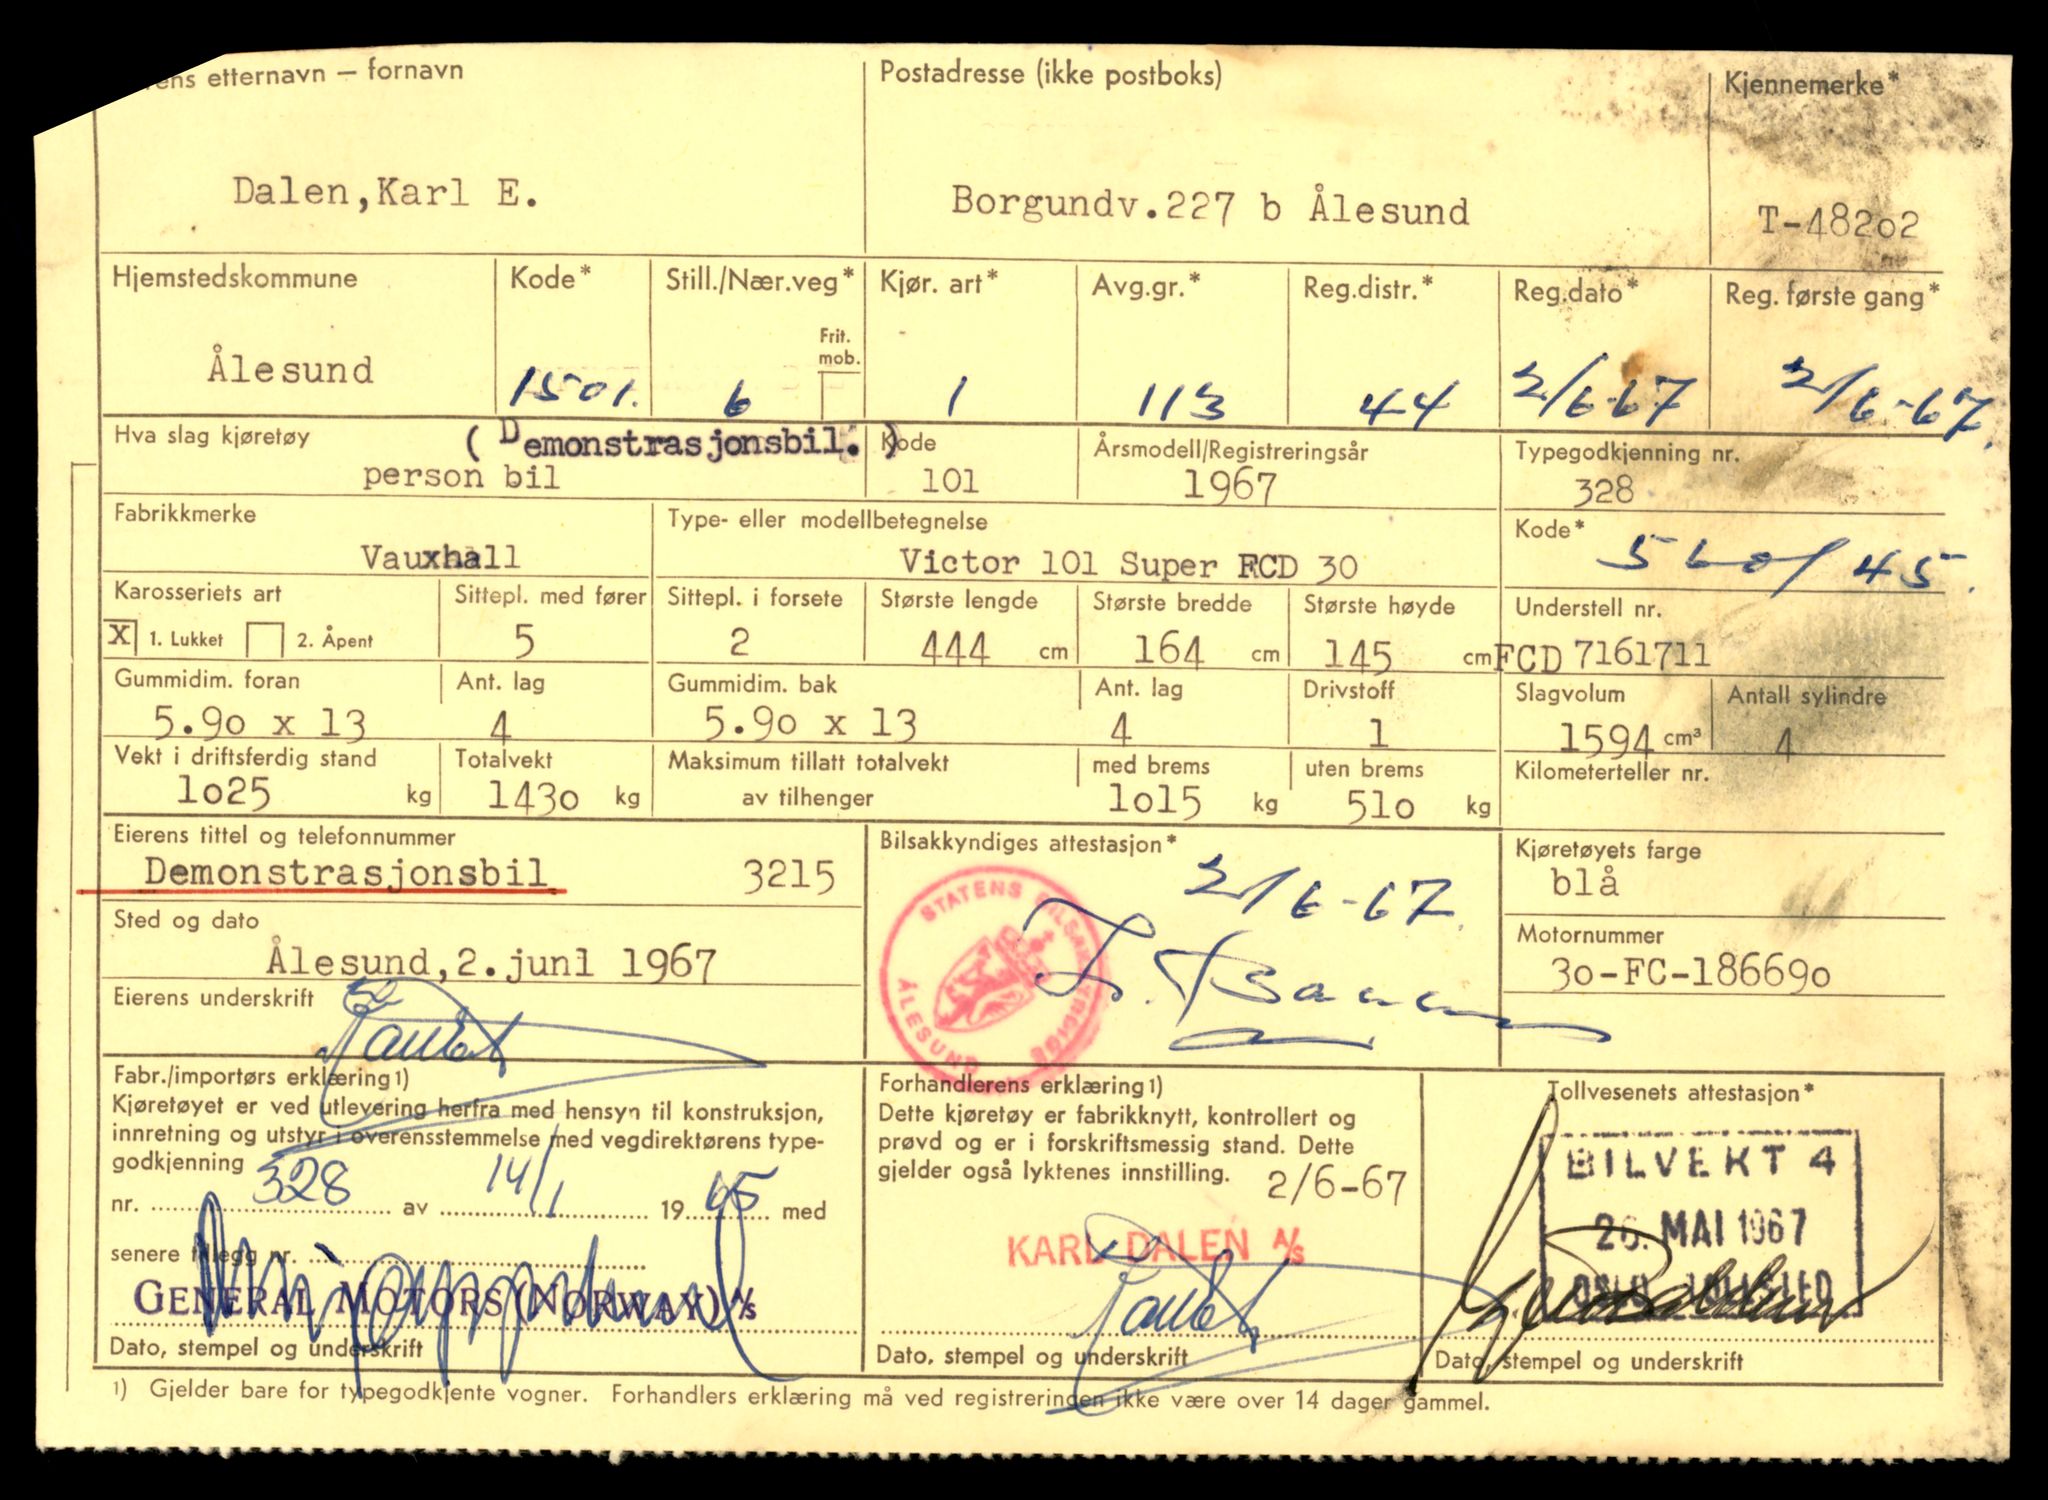 ens etternavn – fornavn Postadresse (ikke postboks) Kjennemerke*
Dalen,Karl E. Borgundv.227 b Ålesund T-48202
Hjemstedskommune Kode* Still./Nær.veg* Kjør. art* Avg.gr.* Reg.distr.* Reg.dato* Reg. første gang*
Frit. mob.
Ålesund 1501. 6 1 113 44 2/6-67 2/6-67.
Hva slag kjøretøy (Demonstrasjonsbil.) Kode Årsmodell/Registreringsår Typegodkjenning nr.
person bil 101 1967 328
Fabrikkmerke Type- eller modellbetegnelse Kode*
Vauxhall Victor 101 Super FCD 30 5601 45.
Karosseriets art Sittepl. med fører Sittepl. i forsete Største lengde Største bredde Største høyde Understell nr.
X 1. Lukket 2. Åpent 5 2 444 cm 164 cm 145 cm FCD 7161711
Gummidim. foran Ant. lag Gummidim. bak Ant. lag Drivstoff Slagvolum Antall sylindre
5.90 x 13 4 5.90 x 13 4 1 1594 cm³ 4
Vekt i driftsferdig stand Totalvekt Maksimum tillatt totalvekt med brems uten brems Kilometerteller nr.
1025 kg 1430 kg av tilhenger 1015 kg 510 kg
Eierens tittel og telefonnummer Bilsakkyndiges attestasjon* Kjøretøyets farge
Demonstrasjonsbil 3215 2/6-67. blå
STATENS BILSAKKYNDIGE ÅLESUND
Sted og dato Motornummer
Ålesund,2.juni 1967 30-FC-186690
Eierens underskrift
Fabr./importørs erklæring1) Forhandlerens erklæring1) Tollvesenets attestasjon*
Kjøretøyet er ved utlevering herfra med hensyn til konstruksjon, Dette kjøretøy er fabrikknytt, kontrollert og
innretning og utstyr i overensstemmelse med vegdirektørens type- prøvd og er i forskriftsmessig stand. Dette
godkjenning gjelder også lyktenes innstilling. 2/6-67
nr. 328 av 14/1 1965 med
BILVEKT 4
26. MAI 1967
OSLO TOLLSTED
senere tillegg nr. KARL DALEN A/S
GENERAL MOTORS (NORWAY) A/S
Dato, stempel og underskrift Dato, stempel og underskrift Dato, stempel og underskrift
1) Gjelder bare for typegodkjente vogner. Forhandlers erklæring må ved registreringen ikke være over 14 dager gammel.